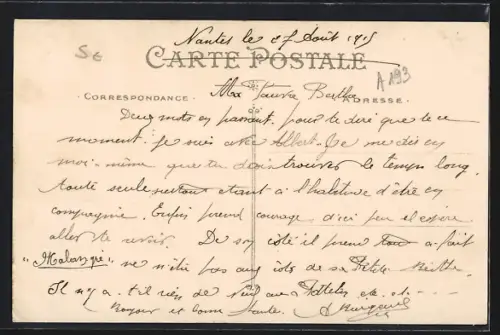 5 €
Nantes le 27 Août 1915
CARTE POSTALE
A 193
Ma Pauvre Berthe
CORRESPONDANCE ADRESSE
Deux mots en passant pour te dire que le ce
moment je suis avec Albert. Je me dis en
moi-même que tu dois trouver le temps long
toute seule surtout étant à l'habitude d'être en
compagnie. Enfin prend courage d'ici peu il espère
aller te revoir. De son côté il prend tout à fait
ne n'être pas aux côtés de sa Petite Berthe
Il n'y a-t-il rien de
Bonjour et bonne Santé.